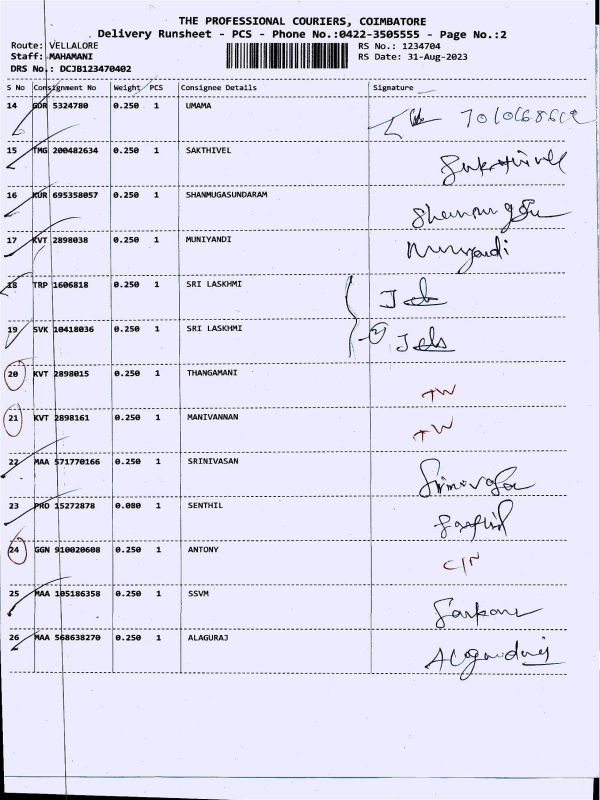 THE PROFESSIONAL COURIERS, COIMBATORE
Delivery Runsheet - PCS - Phone No.:0422-3505555 - Page No.:2
Route: VELLALORE RS No.: 1234704
Staff: MAHAMANI RS Date: 31-Aug-2023
DRS No.: DCJB123470402
S No Consignment No Weight PCS Consignee Details Signature
14 GDR 5324780 0.250 1 UMAMA
15 TMG 200482634 0.250 1 SAKTHIVEL Sakthivel
16 KUR 695358057 0.250 1 SHANMUGASUNDARAM
17 KVT 2898038 0.250 1 MUNIYANDI Muniyandi
18 TRP 1606818 0.250 1 SRI LASKHMI
19 SVK 10418036 0.250 1 SRI LASKHMI
20 KVT 2898015 0.250 1 THANGAMANI
21 KVT 2898161 0.250 1 MANIVANNAN
22 MAA 571770166 0.250 1 SRINIVASAN
23 PRO 15272878 0.080 1 SENTHIL
24 GGN 910020608 0.250 1 ANTONY C/N
25 MAA 105186358 0.250 1 SSVM
26 MAA 568638270 0.250 1 ALAGURAJ